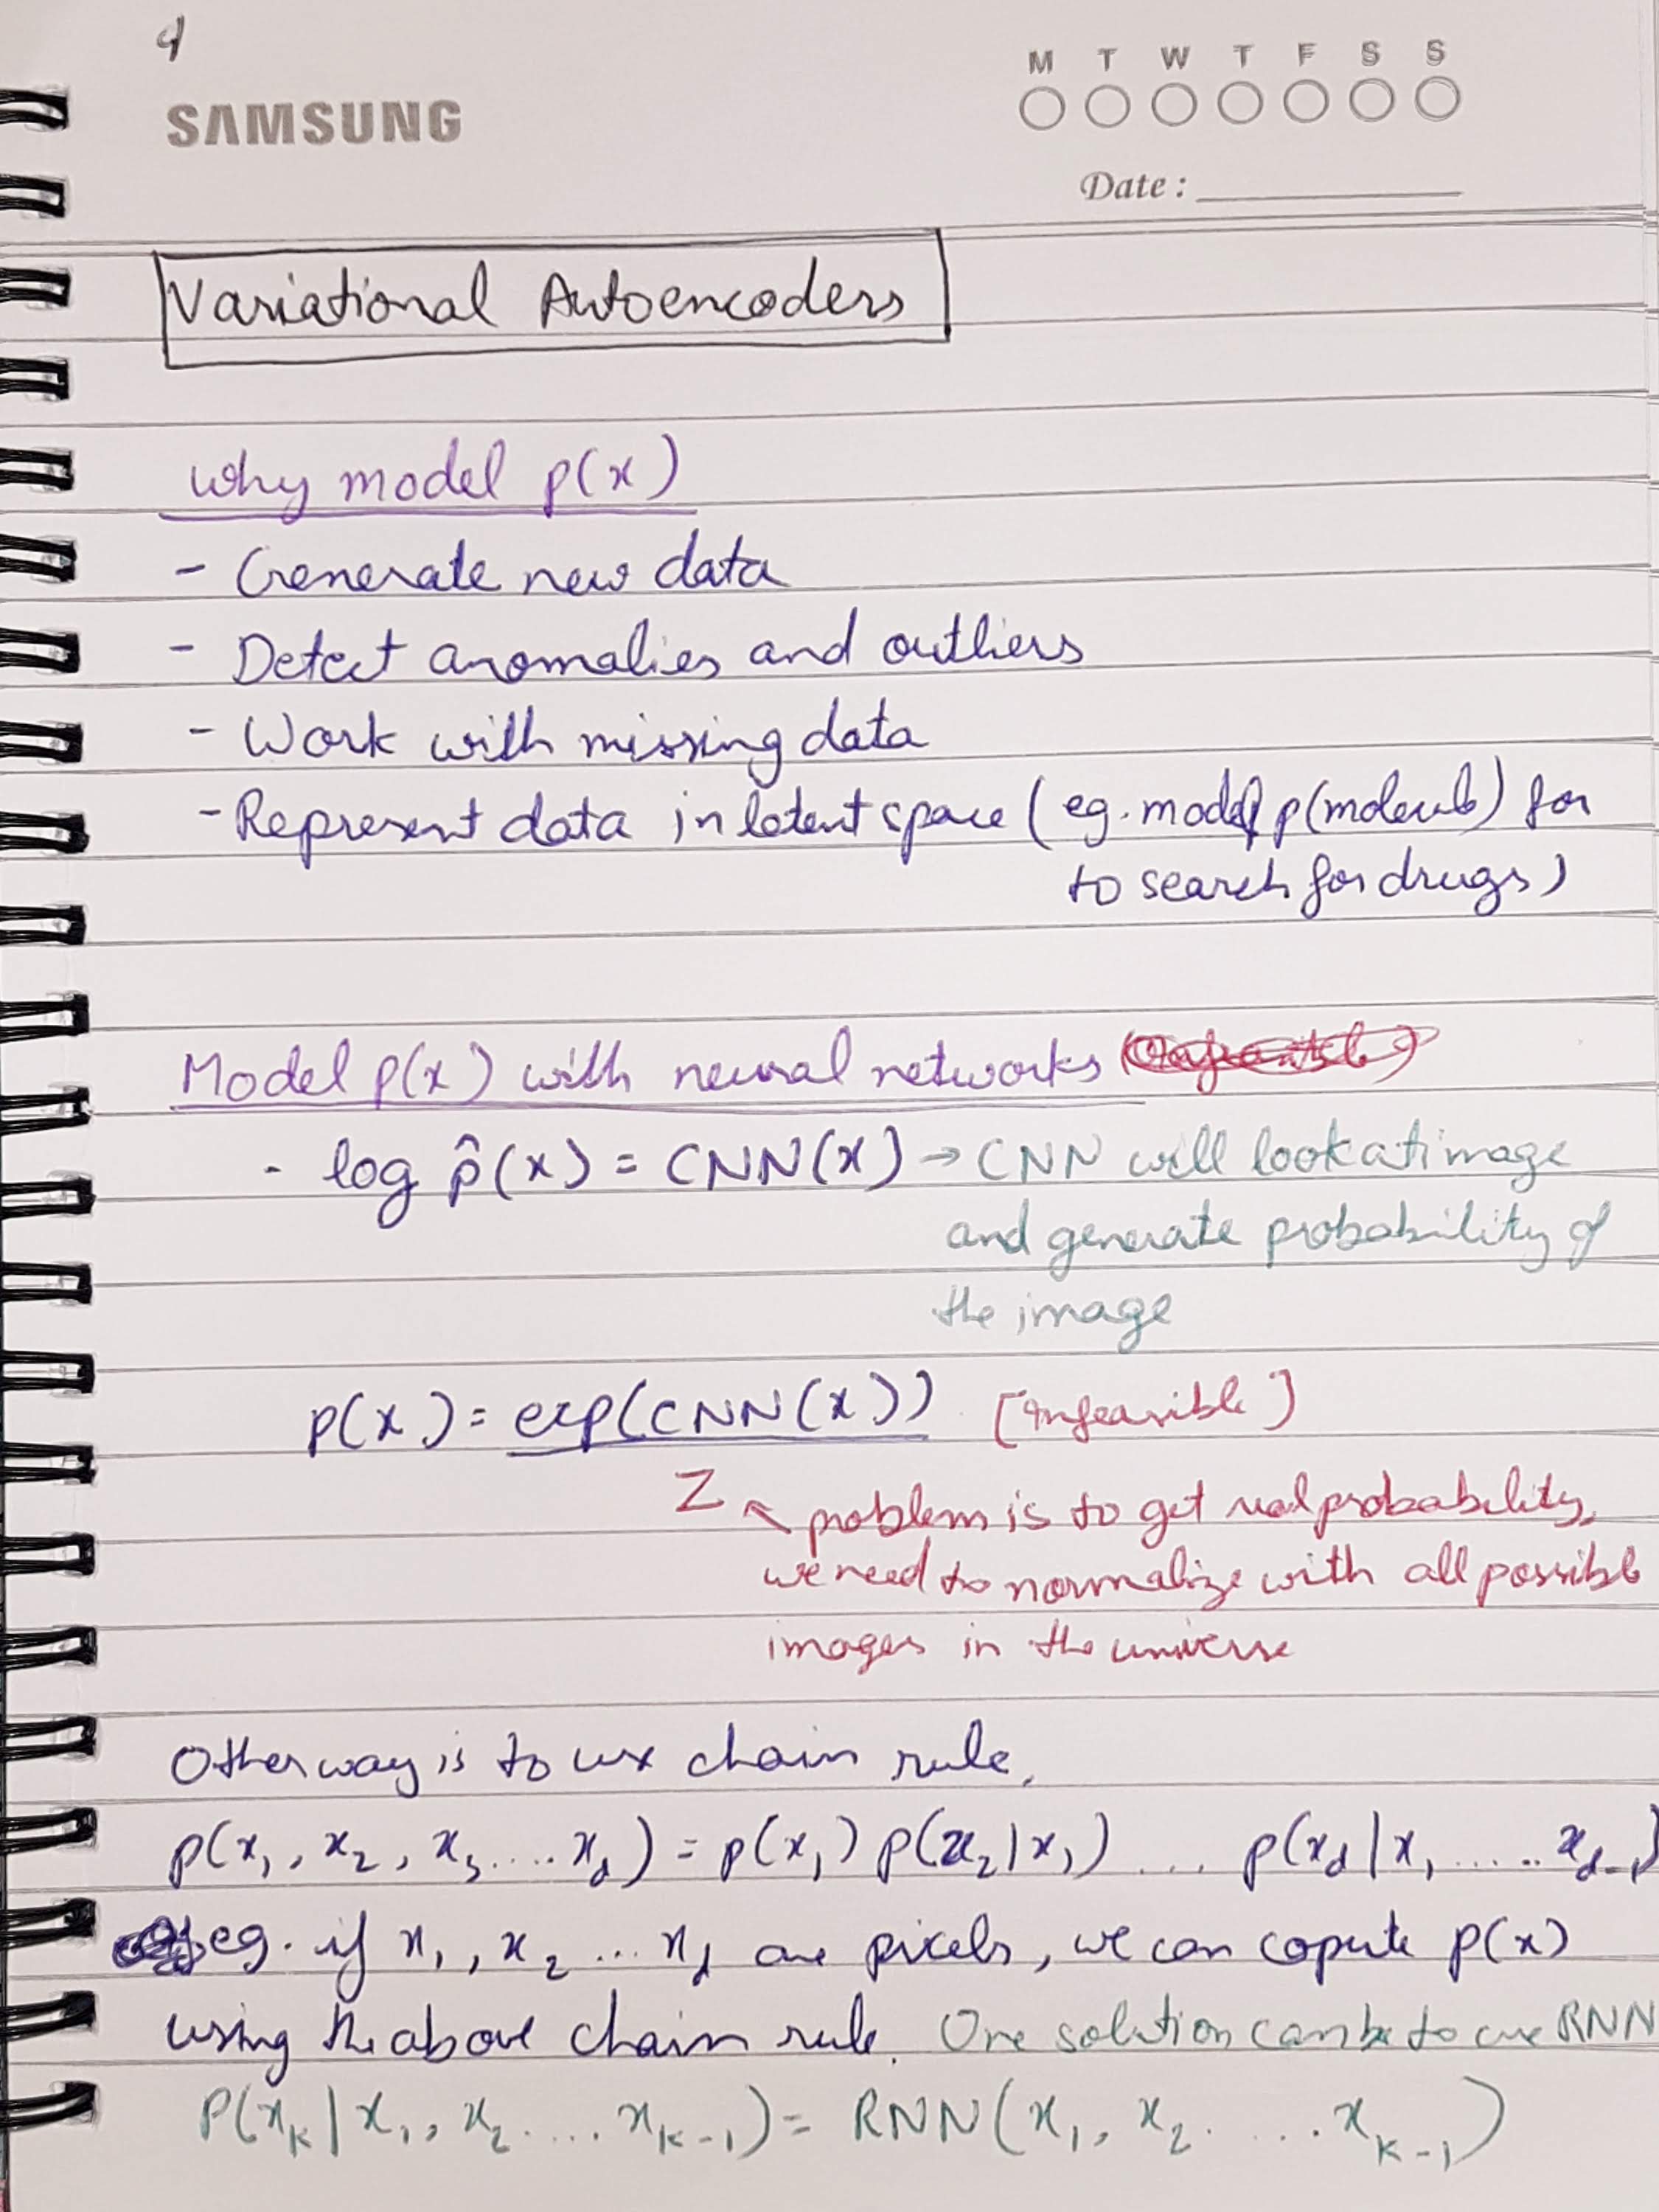 4
SAMSUNG
M T W T F S S
Date :
Variational Autoencoders
why model p(x)
- Generate new data
- Detect anomalies and outliers
- Work with missing data
- Represent data in latent space (eg. model p(molecule) for
to search for drugs)
Model p(x) with neural networks
- log p̂(x) = CNN(x) → CNN will look at image
and generate probability of
the image
p(x) = exp(CNN(x)) [Infeasible]
Z ↖ problem is to get real probability,
we need to normalize with all possible
images in the universe
Other way is to use chain rule,
p(x₁, x₂, x₃....x_d) = p(x₁) p(x₂|x₁) ... p(x_d|x₁.....x_d-1)
eg. if x₁, x₂...x_d are pixels, we can copute p(x)
using the above chain rule. One solution can be to use RNN
P(x_k|x₁, x₂.....x_k-1) = RNN(x₁, x₂.....x_k-1)